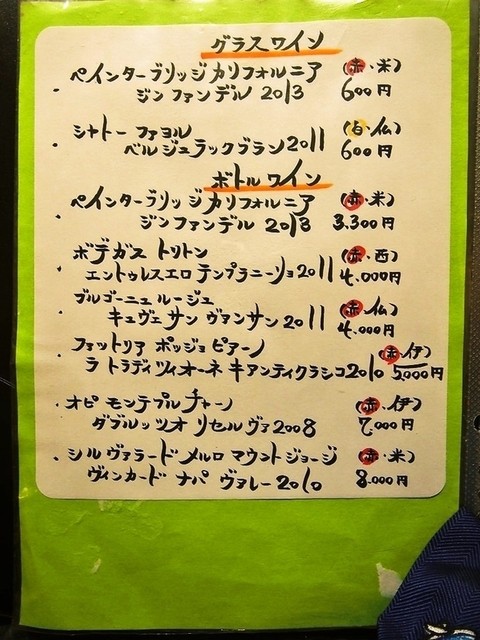 グラスワイン
ペインターブリッジカリフォルニア (赤・米)
ジンファンデル 2013 600円
シャトー ファヨル (白・仏)
ベルジュラックブラン2011 600円
ボトルワイン
ペインターブリッジカリフォルニア (赤・米)
ジンファンデル 2013 3,300円
ボデガス トリトン (赤・西)
エントゥレスエロ テンプラニーリョ2011 4,000円
ブルゴーニュ ルージュ (赤・仏)
キュヴェ サン ヴァンサン2011 4,000円
ファットリア ポッジョ ピアーノ (赤・伊)
ラ トラディツィオーネ キアンティクラシコ2010 5,000円
オピ モンテプルチャーノ (赤・伊)
ダブルッツオ リセルヴァ2008 7,000円
シルヴァラード メルロ マウントジョージ (赤・米)
ヴィンヤード ナパ ヴァレー2010 8,000円